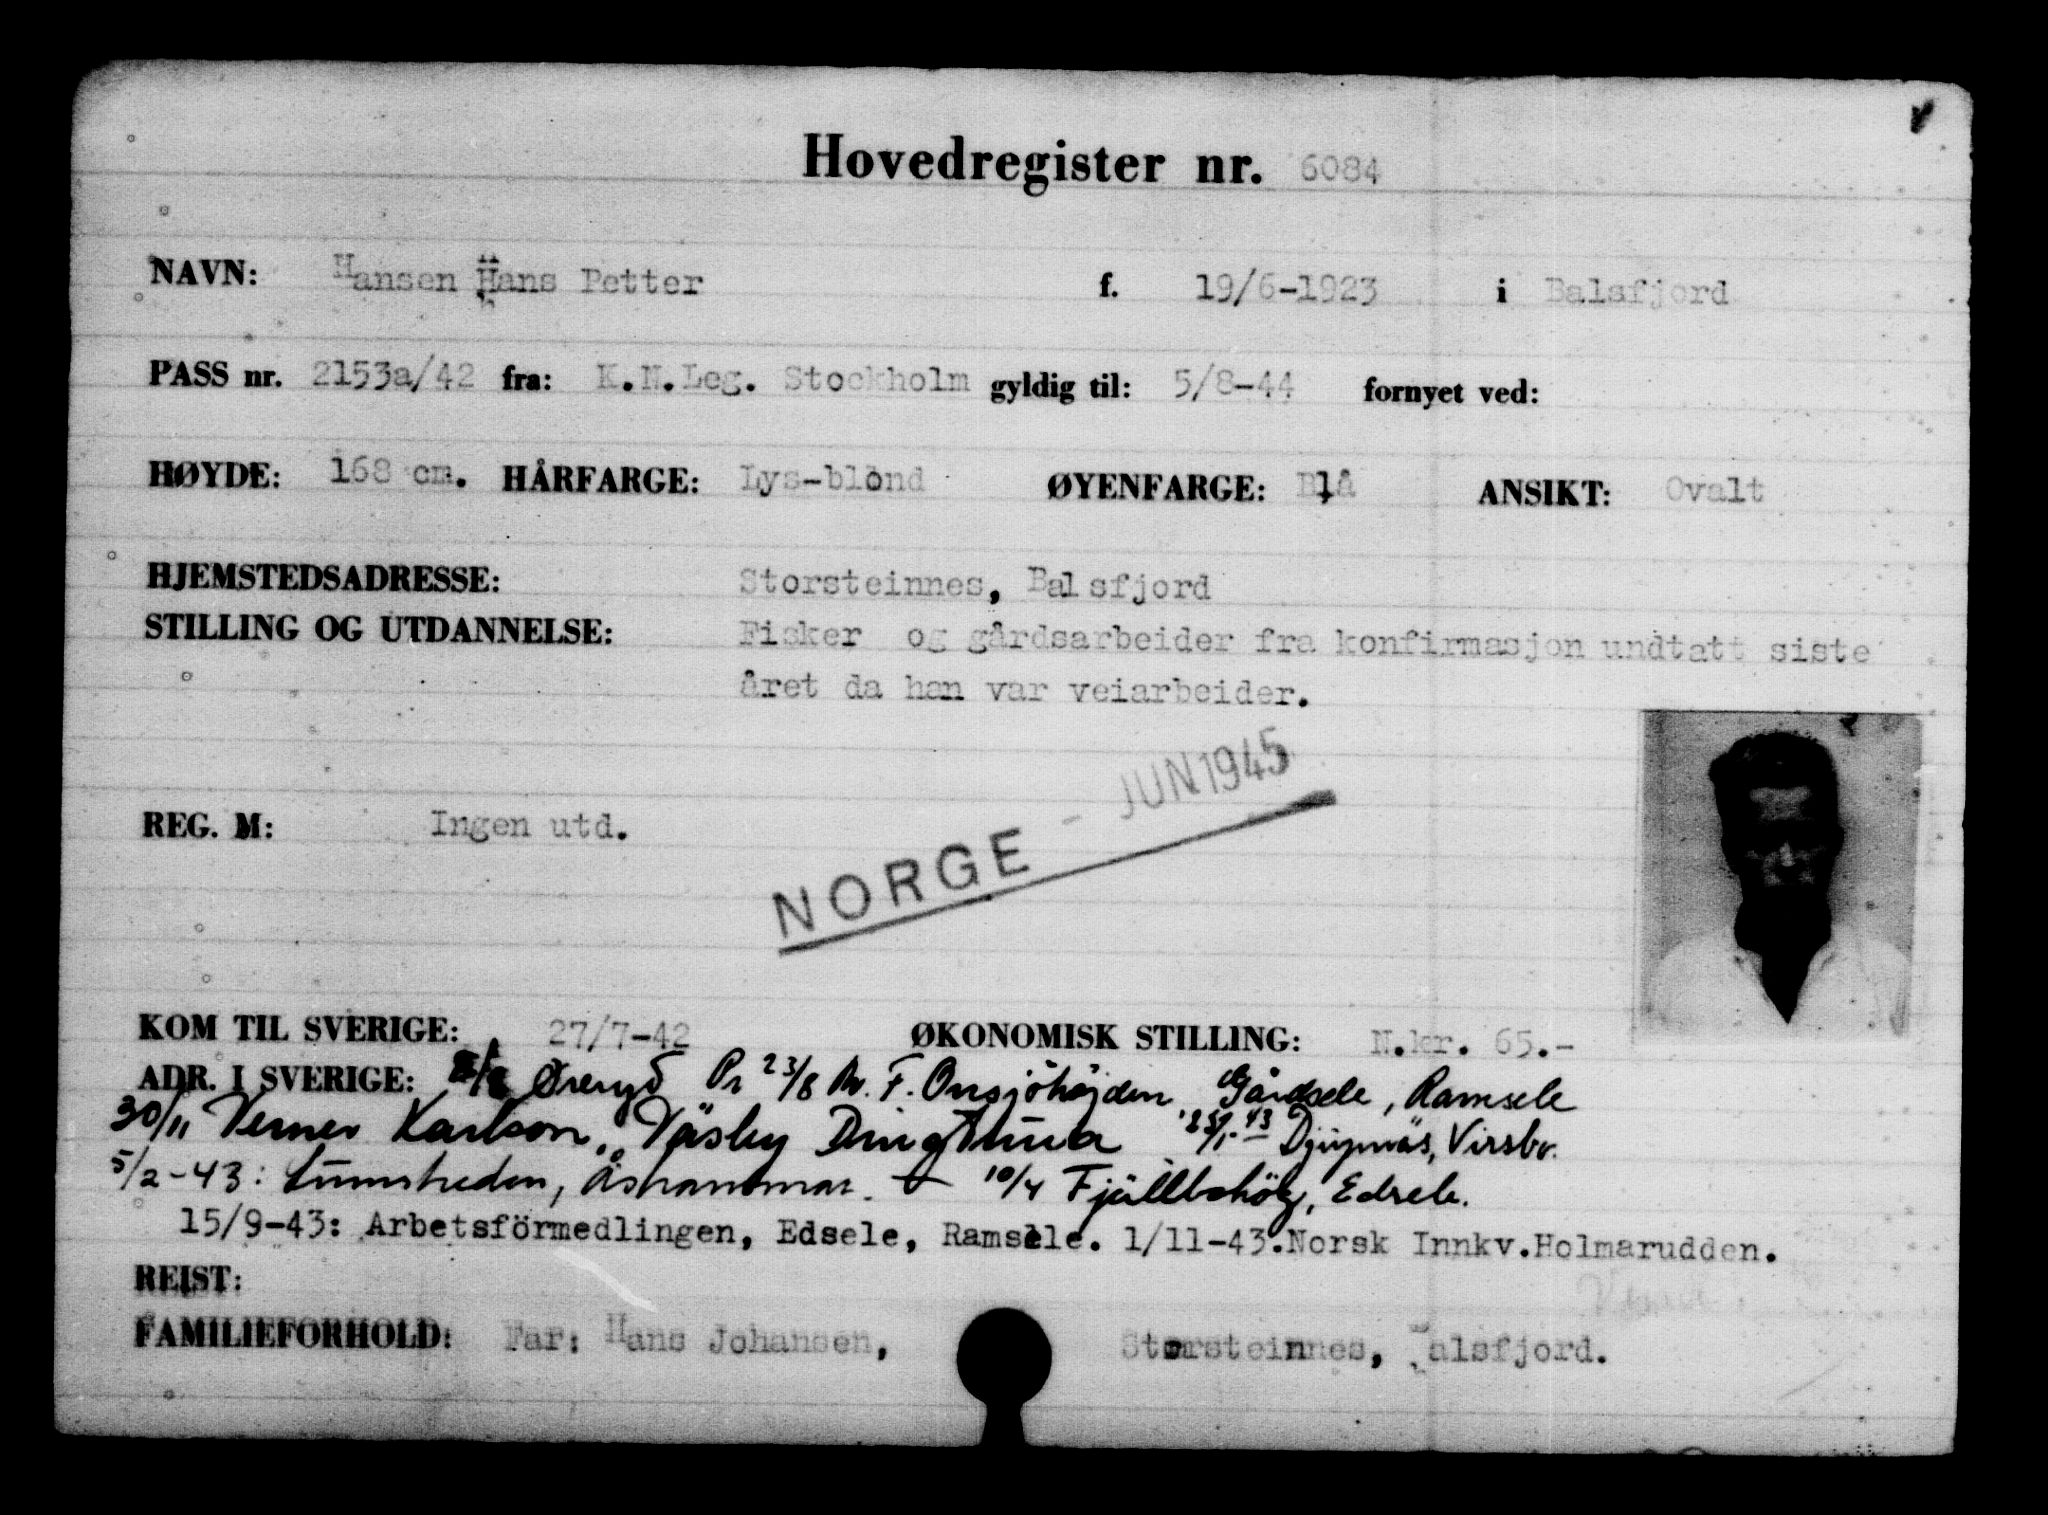 Hovedregister nr. 6084
NAVN: Hansen Hans Petter f. 19/6-1923 i Balsfjord
PASS nr. 2153a/42 fra: K.N.Leg. Stockholm gyldig til: 5/8-44 fornyet ved:
HØYDE: 168 cm. HÅRFARGE: Lys-blond ØYENFARGE: Blå ANSIKT: Ovalt
HJEMSTEDSADRESSE: Storsteinnes, Balsfjord
STILLING OG UTDANNELSE: Fisker og gårdsarbeider fra konfirmasjon undtatt siste
året da han var veiarbeider.
JUN 1945
REG. M: Ingen utd.
NORGE
KOM TIL SVERIGE: 27/7-42 ØKONOMISK STILLING: N.kr. 65.-
ADR. I SVERIGE: Øreryd Pr 23/8 F. Onsjöhöjden Gårdsele, Ramsele
30/11 Verner Karlson, Väsby Dingtuna 43 Djupnäs, Virsbo.
5/2-43: Lumsheden, Åshammar. 10/4 Fjällbohög, Edsele.
15/9-43: Arbetsförmedlingen, Edsele, Ramsele. 1/11-43. Norsk Innkv. Holmarudden.
REIST:
FAMILIEFORHOLD: Far: Hans Johansen, Storsteinnes, Balsfjord.